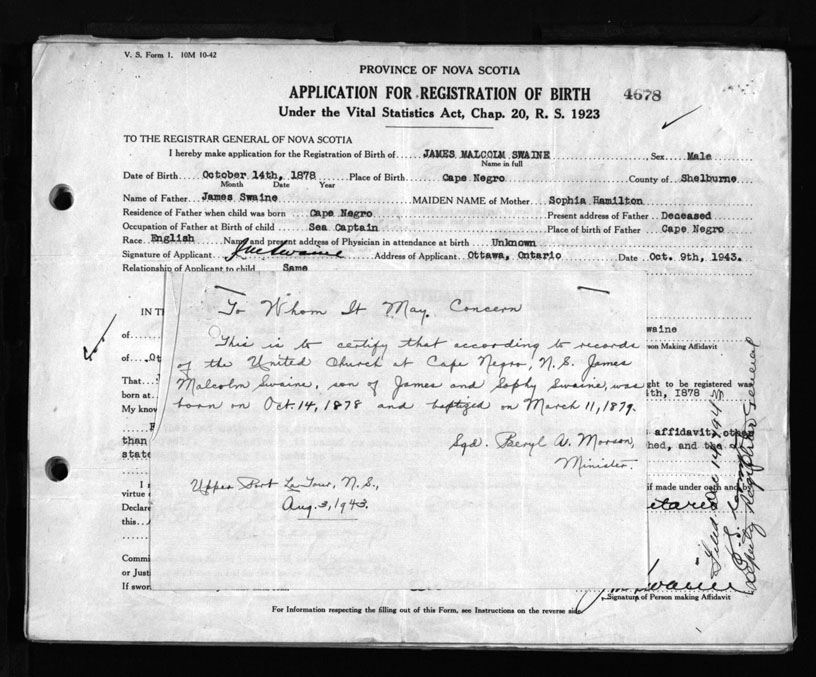 V. S. Form 1. 10M 10-42
PROVINCE OF NOVA SCOTIA
APPLICATION FOR REGISTRATION OF BIRTH 4678
Under the Vital Statistics Act, Chap. 20, R. S. 1923
TO THE REGISTRAR GENERAL OF NOVA SCOTIA
I hereby make application for the Registration of Birth of JAMES MALCOLM SWAINE Sex Male
Name in full
Date of Birth October 14th, 1878 Place of Birth Cape Negro County of Shelburne
Month Date Year
Name of Father James Swaine MAIDEN NAME of Mother Sophia Hamilton
Residence of Father when child was born Cape Negro Present address of Father Deceased
Occupation of Father at Birth of child Sea Captain Place of birth of Father Cape Negro
Race English Name and present address of Physician in attendance at birth Unknown
Signature of Applicant J M Swaine Address of Applicant Ottawa, Ontario Date Oct. 9th, 1943.
Relationship of Applicant to child Same
To Whom It May Concern
This is to certify that according to records
of the United Church at Cape Negro, N.S. James
Malcolm Swaine, son of James and Sophy Swaine, was
born on Oct. 14, 1878 and baptized on March 11, 1879.
Sgd. Beryl
Minister.
Upper Port La Tour, N.S.,
Aug. 3, 1943.
IN T
of
of
That
born at
My know
than
state
I
virtue
Declare
this
Commi
or Justi
If swor
waine
son Making Affidavit
ght to be registered was
th, 1878
affidavit, other
hed, and the
if made under oath and by
J. M. Swaine
Signature of Person making Affidavit
Deputy Registrar General
For Information respecting the filling out of this Form, see Instructions on the reverse side.